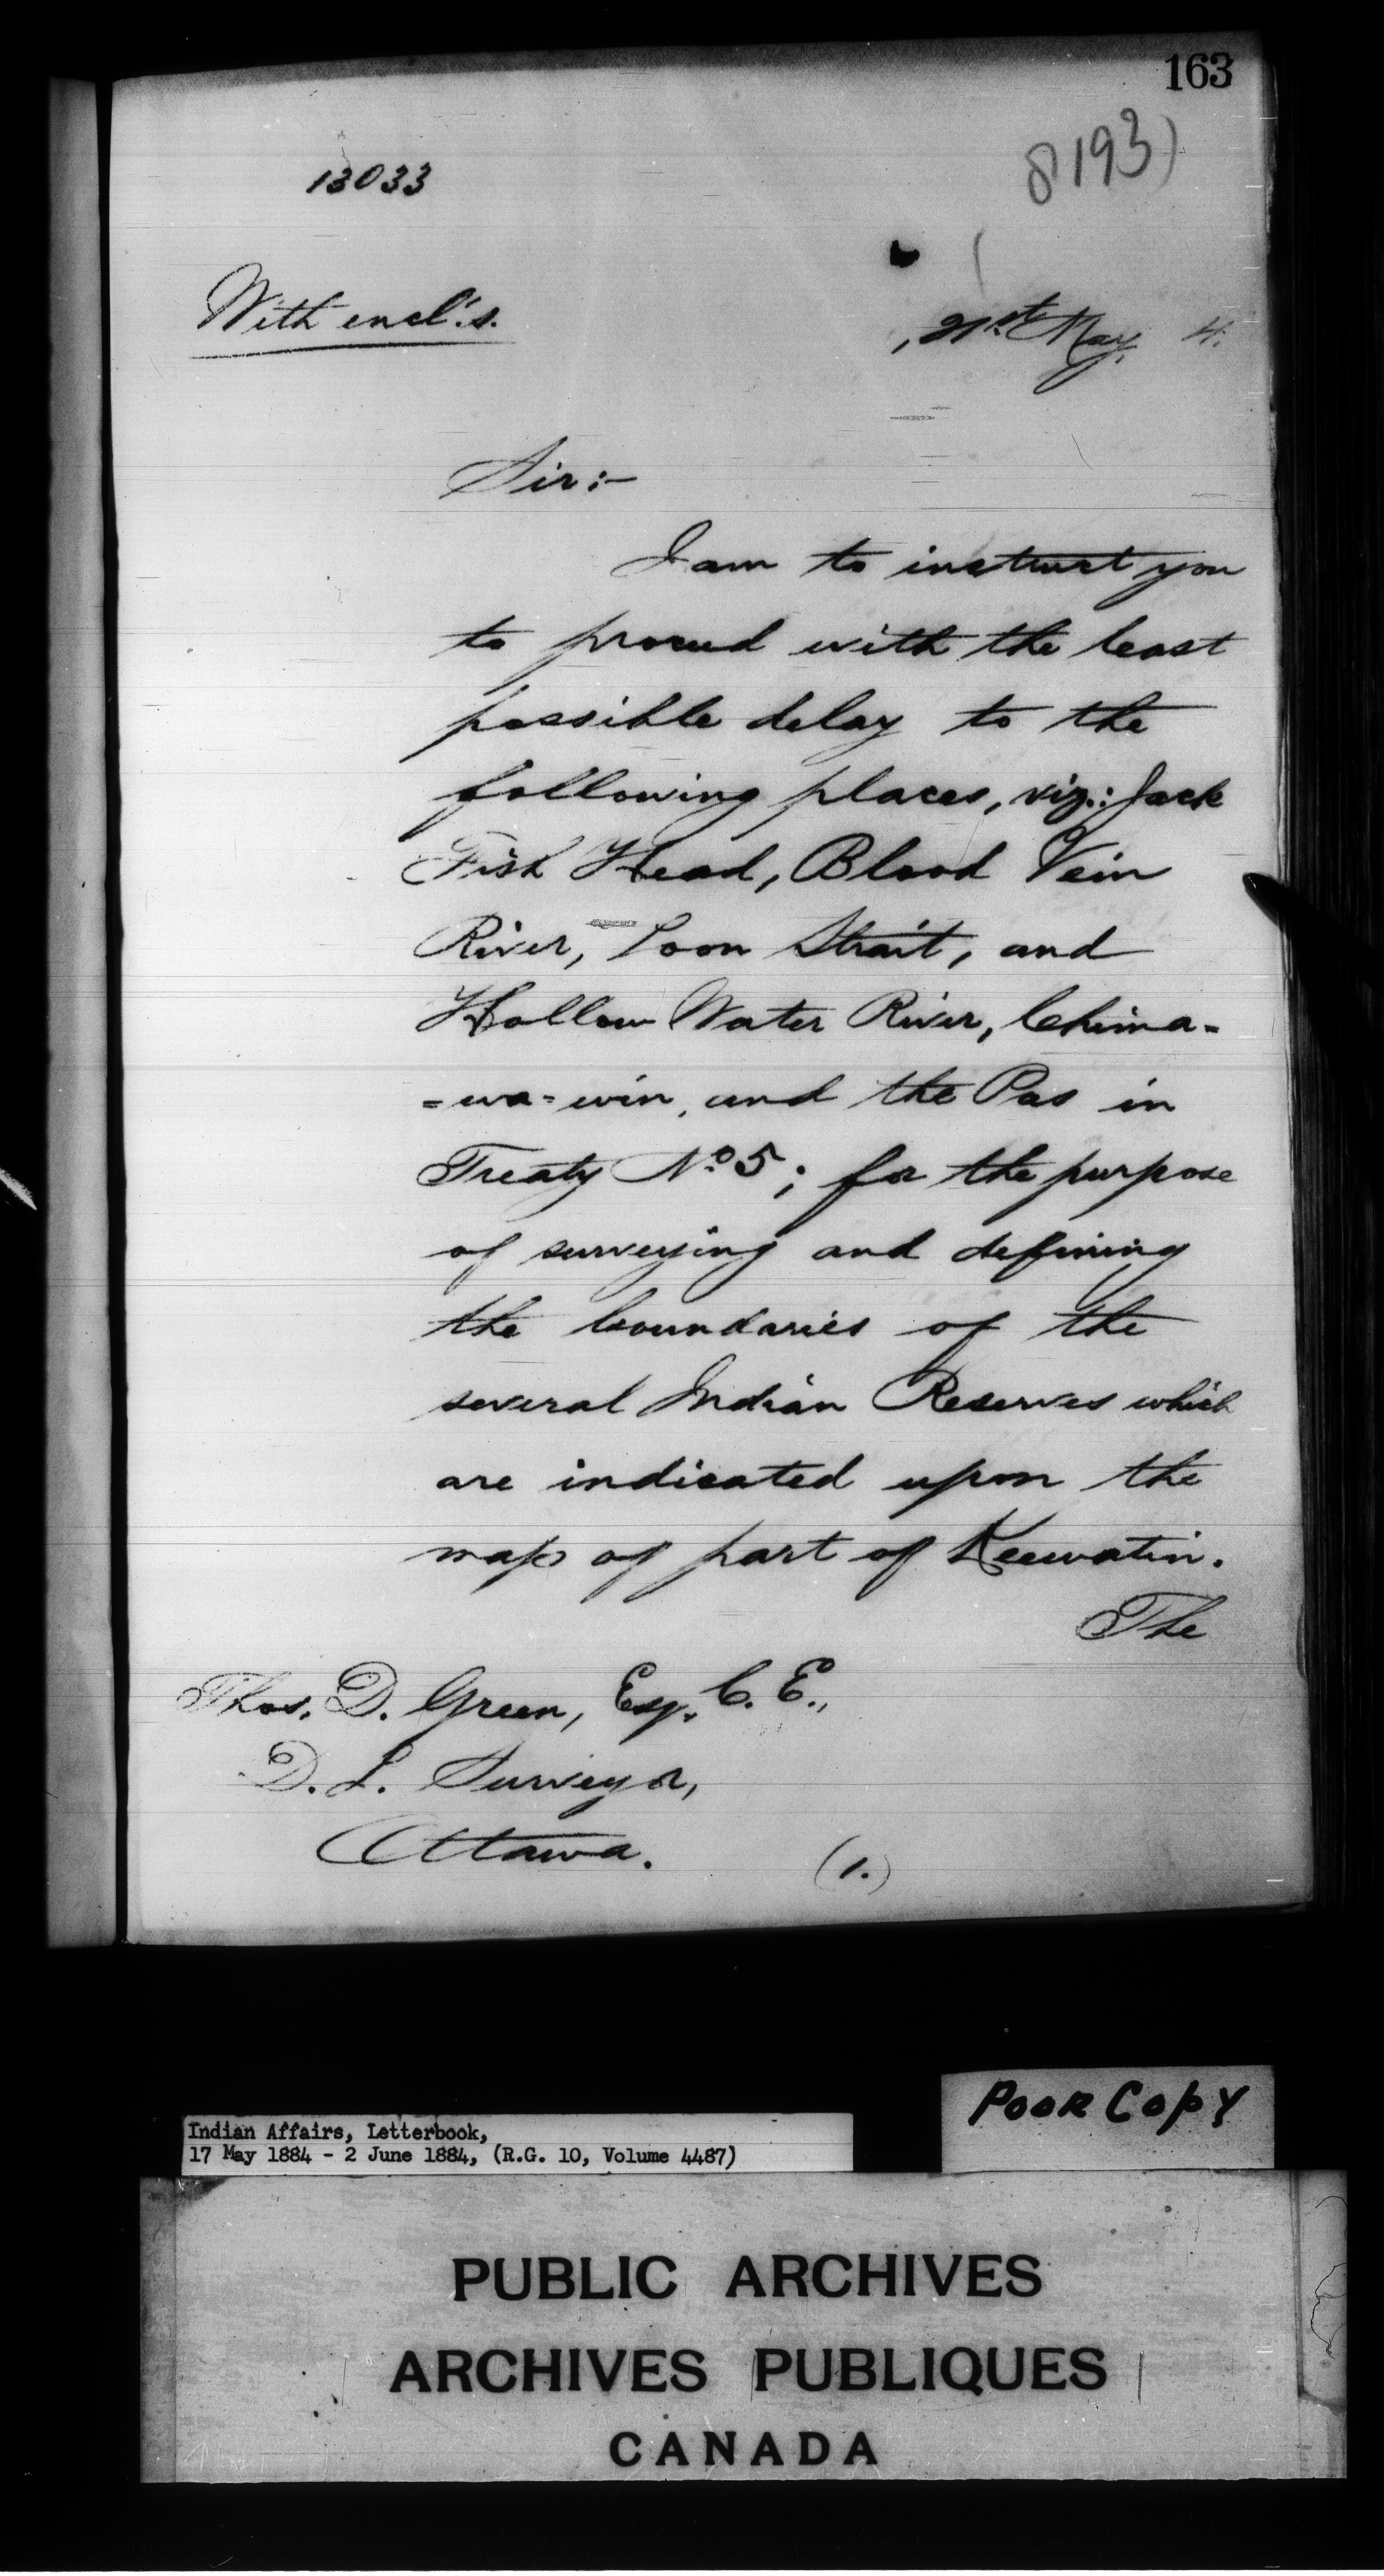 163
8193)
13033
With encl's.
, 21st May, 4.
Sir:-
I am to instruct you
to proceed with the least
possible delay to the
following places, viz.: Jack
Fish Head, Blood Vein
River, Loon Strait, and
Hollow Water River, Chima-
=wa=win, and the Pas in
Treaty No. 5; for the purpose
of surveying and defining
the boundaries of the
several Indian Reserves which
are indicated upon the
map of part of Keewatin.
The
Thos. D. Green, Esq. C. E.,
D. L. Surveyor,
Ottawa.
(1.)
Poor Copy
Indian Affairs, Letterbook,
17 May 1884 - 2 June 1884, (R.G. 10, Volume 4487)
PUBLIC ARCHIVES
ARCHIVES PUBLIQUES
CANADA